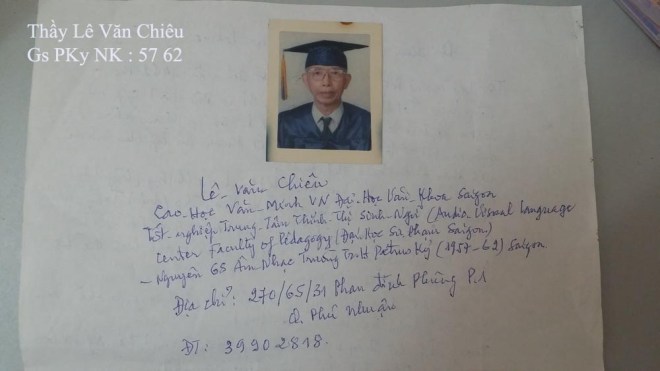 Thầy Lê Văn Chiêu
Gs PKy NK : 57 62
Lê Văn Chiêu
Cao Học Văn Minh VN Đại Học Văn Khoa Saigon
Tốt nghiệp Trung Tâm Thính Thị Sinh Ngữ (Audio Visual Language
Center Faculty of Pédagogy (Đại Học Sư Phạm Saigon)
- Nguyên GS Âm Nhạc Trường TrH Petrus Ký (1957-62) Saigon
Địa chỉ: 270/65/31 Phan Đình Phùng P.1
Q. Phú Nhuận
ĐT: 39902818.